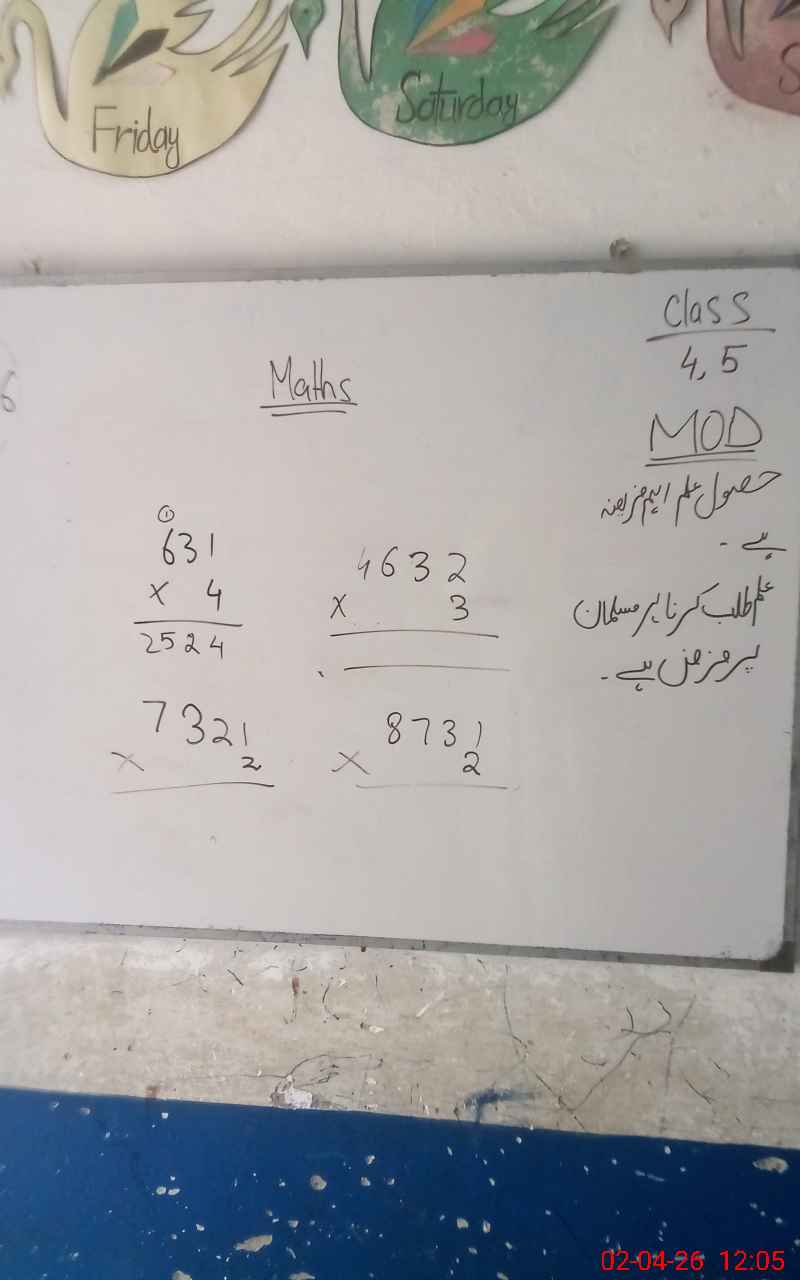 Friday
Saturday
S
Class
4, 5
Maths
MOD
حصول علم اہم فریضہ
ہے ۔
علم طلب کرنا ہر مسلمان
پر فرض ہے ۔
6
①
631
× 4
2524
4632
× 3
7321
× 2
8731
× 2
02-04-26 12:05